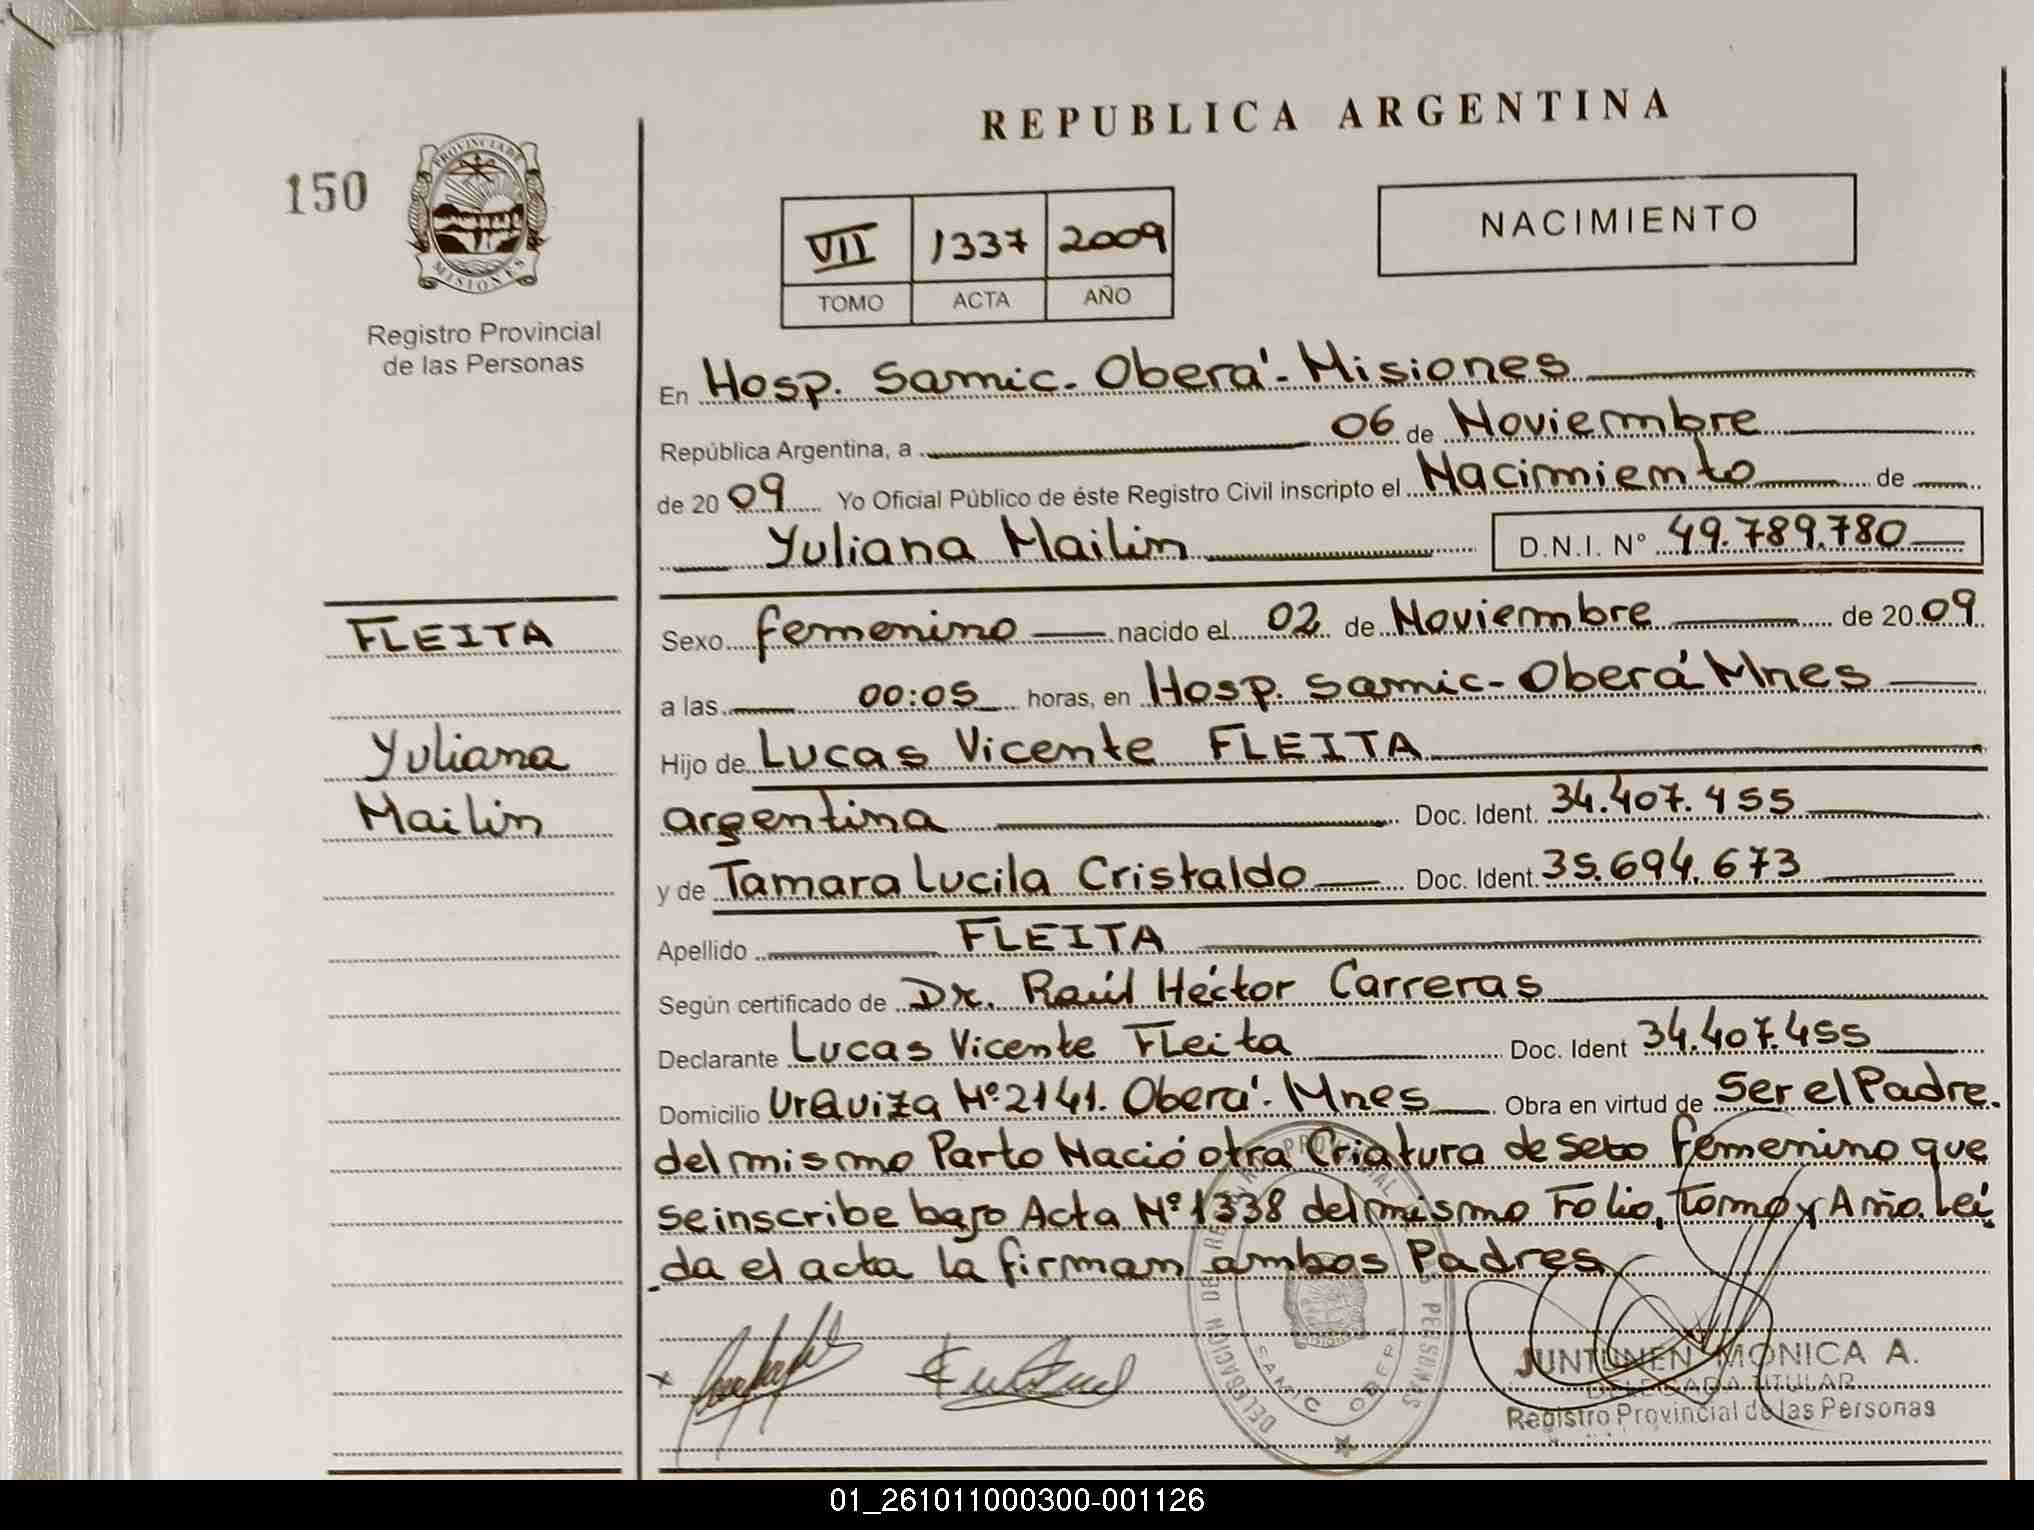 REPUBLICA ARGENTINA
150
PROVINCIA DE
MISIONES
Registro Provincial
de las Personas
VII 1337 2009
TOMO ACTA AÑO
NACIMIENTO
En Hosp. Samic. Oberá - Misiones
República Argentina, a 06 de Noviembre
de 2009 Yo Oficial Público de éste Registro Civil inscripto el Nacimiento de
Yuliana Mailin D.N.I. N° 49.789.780
FLEITA
Yuliana
Mailin
Sexo femenino nacido el 02 de Noviembre de 2009
a las 00:05 horas, en Hosp. Samic - Oberá Mnes
Hijo de Lucas Vicente FLEITA
argentina Doc. Ident. 34.407.455
y de Tamara Lucila Cristaldo Doc. Ident. 35.694.673
Apellido FLEITA
Según certificado de Dr. Raúl Héctor Carreras
Declarante Lucas Vicente Fleita Doc. Ident 34.407.455
Domicilio Urquiza Nº 2141. Oberá. Mnes Obra en virtud de Ser el Padre.
del mismo Parto Nació otra Criatura de sexo femenino que
se inscribe bajo Acta Nº 1338 del mismo Folio, Tomo y Año. Leí
da el acta la firman ambos Padres
DELEGACION DE REGISTRO PROVINCIAL DE LAS PERSONAS
SAMIC OBERA
JUNTUNEN MONICA A.
DELEGADA TITULAR
Registro Provincial de las Personas
01_261011000300-001126